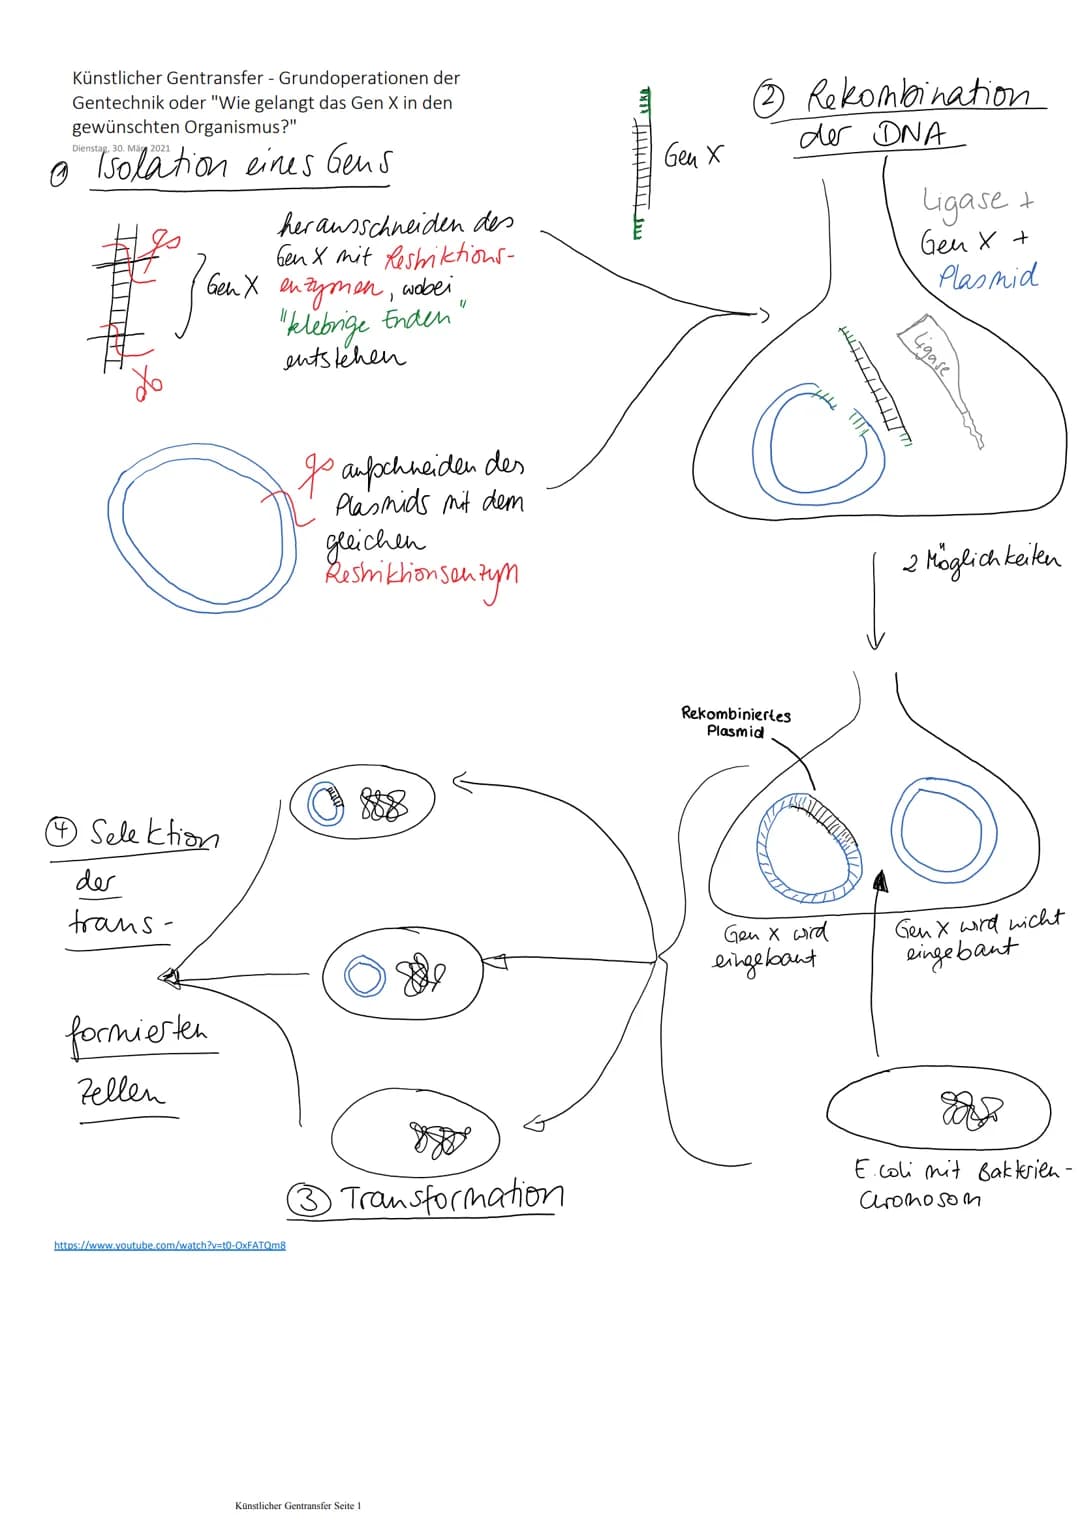 Künstlicher Gentransfer - Grundoperationen der
Gentechnik oder "Wie gelangt das Gen X in den
gewünschten Organismus?"
Dienstag, 30. März 2021
① Isolation eines Gens
Gen X
herausschneiden des
Gen X mit Restriktions-
enzymen, wobei
"klebrige Enden"
entstehen
aufschneiden des
Plasmids mit dem
gleichen
Restriktionsenzym
Gen X
② Rekombination
der DNA
Ligase +
Gen X +
Plasmid
Ligase
2 Möglichkeiten
Rekombiniertes
Plasmid
Gen X wird
eingebaut
Gen X wird nicht
eingebaut
E.coli mit Bakterien-
Chromosom
③ Transformation
④ Selektion
der
trans-
formierten
Zellen
https://www.youtube.com/watch?v=t0-OxFATQm8
Künstlicher Gentransfer Seite 1